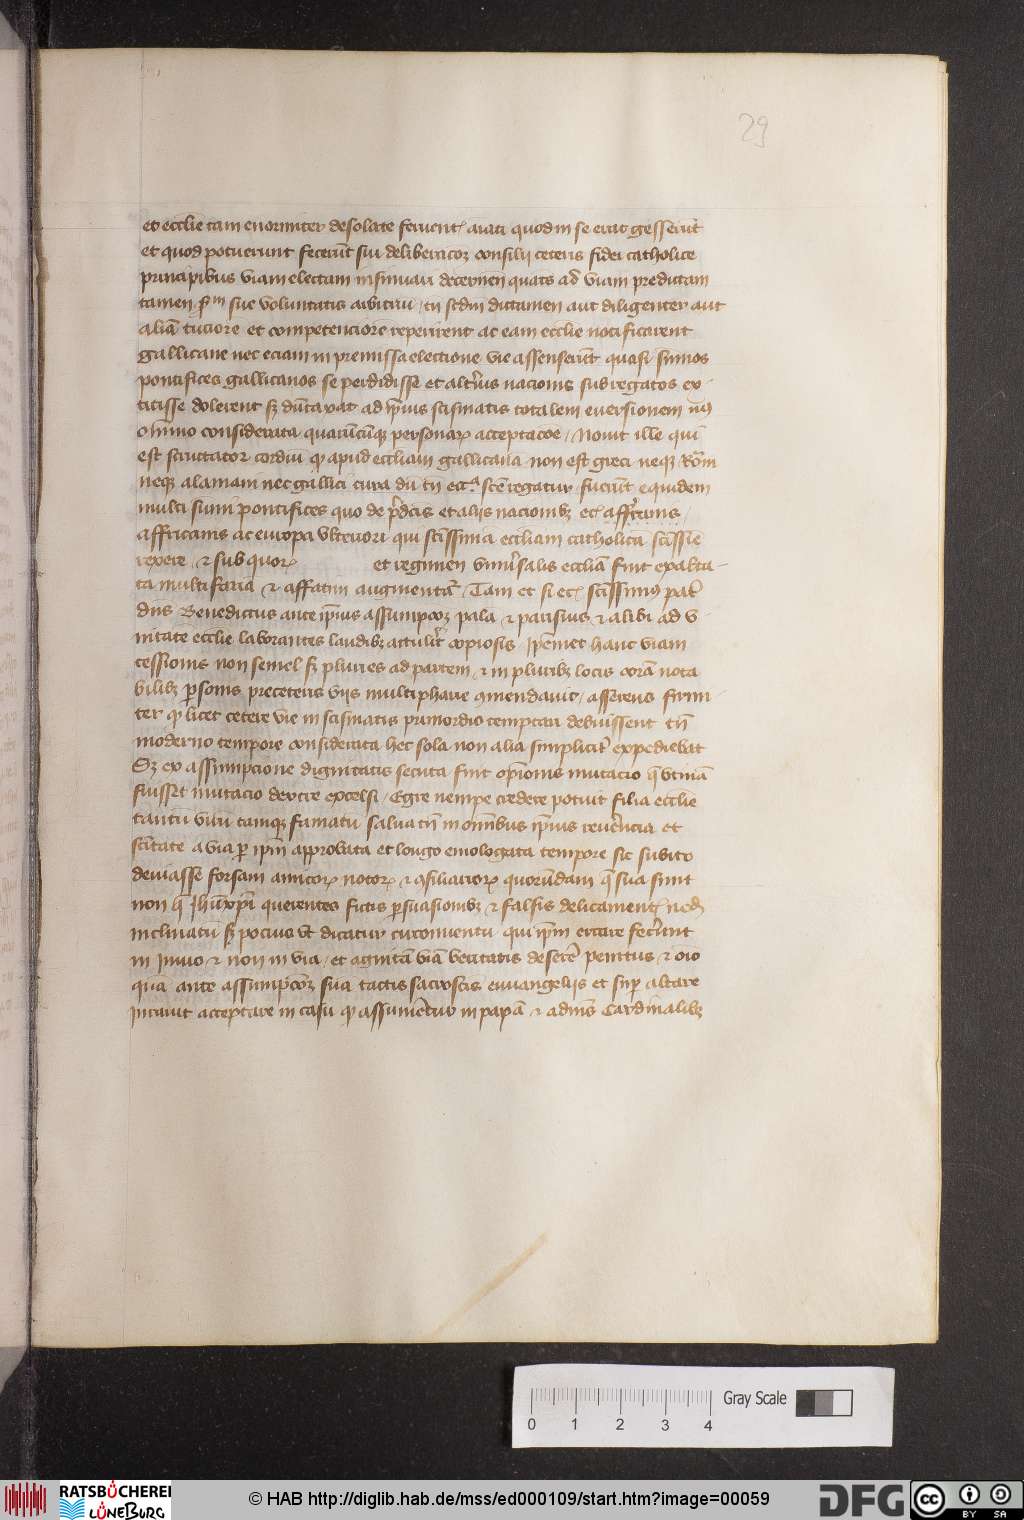 29
et ecclie tam enormiter desolate feruent avati quod in se erat gesserūt
et quod potuerunt fecerūt sui deliberacōꝫ consilij ceteris fidei catholice
principibus viam electam insinuari decernen quatꝰ ad viam predictam
tamen sue voluntatis arbitriū tn̄ scdm dictamen aut diligenter aut
aliā tuciorē et competenciorē reperirent ac eam ecclie notificarent
gallicane nec eciam in premissa electione vie assenserūt quasi sūmos
pontifices gallicanos se perdidisse et alteriꝰ nacionis subrogatos ex-
titisse dolerent sꝫ dūtaxat ad ip̄ius scismatis totalem euersionem
omino considerata quarūcūqꝫ personarꝫ acceptacōe Nouit ille qui
est scrutator cordiū qꝫ apud eccliam gallicanā non est greci neqꝫ Rom
neqꝫ alamani nec gallici cura dū tn̄ sctē regatur fuerūt equidem
multi sumi pontifices quo de p̄dcis et alijs nacionibꝫ etc̄
affricanis ac europa vlteriori qui sctissime eccliam catholicā sctissie
rexere ⁊ sub quorꝫ et regimen vniuersalis ecclia fuit exalta-
ta multifaria ⁊ affatim augmentata Tam et si etc̄ sctissimꝰ pater
dns Benedictus ante ip̄ius assumpcōꝫ pala ⁊ parisius ⁊ alibi ad v-
nitatē ecclie laborantes laudibꝫ attulit copiosis Ip̄emet hanc viam
cessionis non semel sꝫ plures ad partem ⁊ in pluribꝫ locis corā nota
bilibꝫ p̄sonis preceteris vijs multipharie ꝯmendauit asserens firmi-
ter qꝫ licet cetere vie in scismatis primordio temptari debuissent tn̄
moderno tempore considerata hec sola non alia simplicit̄ expediebat
Sꝫ ex assumpcione dignitatis secuta fuit opinionis mutacio q̄ vtinā
fuisset mutacio dextre excelsi Egre nempe credere potuit filia ecclie
tantū virū tamqꝫ famatū salua tn̄ in om̄ibus ip̄ius reuerēcia et
sctitate a via ꝑ ip̄m approbata et longo emologata tempore sic subito
deuiasse forsam amicorꝫ notorꝫ ⁊ ꝯsiliariorꝫ quorūdam q̄ sua sunt
non q̄ Jhūxp̄i querentes fictis p̄suasionibꝫ ⁊ falsis delicament
inclinatū sꝫ pocius vt dicatur circumuentū qui ip̄m errare fecerūt
in inuio ⁊ non in via et agnitā viā veritatis deserere penitus ⁊ oīo
quā ante assumpcōꝫ suā tactis sacrosctis euuangelijs et sup̄ altare
iurauit acceptare in casu qꝫ assumeretur in papā ⁊ adiūs Cardinalibꝫ
0 1 2 3 4
Gray Scale
RATSBÜCHEREI
LÜNEBURG
© HAB http://diglib.hab.de/mss/ed000109/start.htm?image=00059
DFG
cc
BY SA